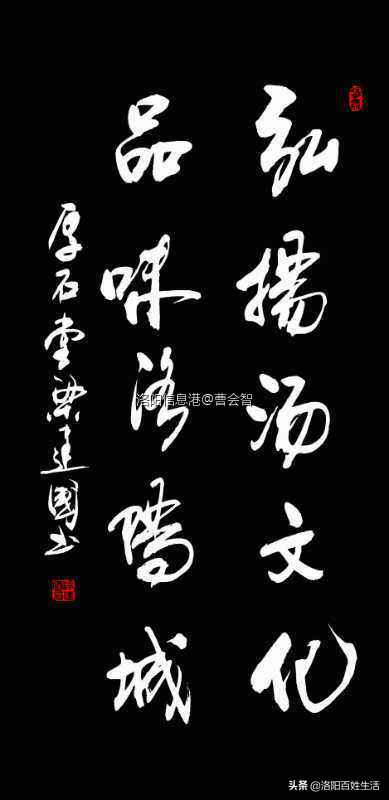 弘揚汤文化
品味洛陽城
厚石堂梁建國书
洛阳信息港@曹会智
头条 @洛阳百姓生活